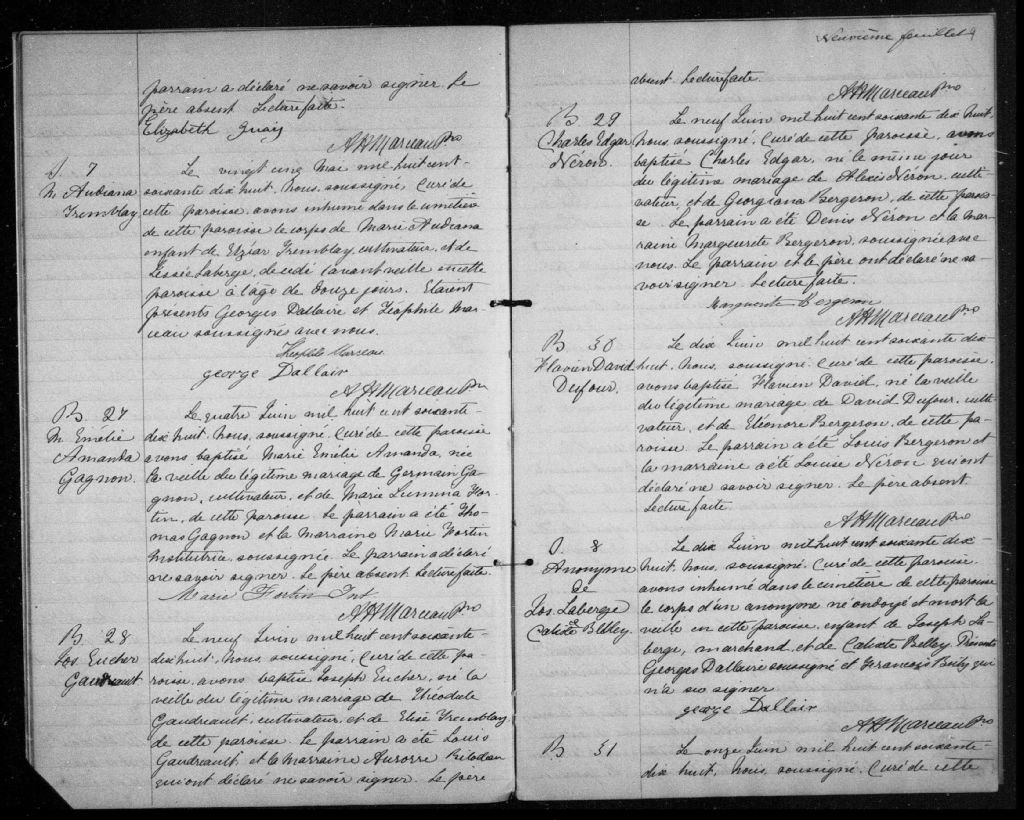 parrain a déclaré ne savoir signer. Le
père absent Lecture faite.
Elizabeth Guay
A H Marceau Ptre
S. 7
M Audeana
Tremblay
Le vingt cinq Mai mil huit cent-
soixante dix huit, Nous, soussigné, Curé de
cette paroisse, avons inhumé dans le cimetière
de cette paroisse le corps de Marie Audeana
enfant de Elzéar Tremblay, cultivateur, et de
Lessie Laberge, décédé l'avant veille en cette
paroisse à l'âge de douze jours. Etaient
présents Georges Dallaire et Théophile Mar-
ceau soussignés avec nous.
Théophile Marceau
george Dallair
A H Marceau Ptre
B. 27
M Emélie
Amanda
Gagnon.
Le quatre Juin mil huit cent soixante-
dix huit, Nous, soussigné, Curé de cette paroisse
avons baptisé Marie Emélie Amanda, née
la veille du légitime mariage de Germain Ga-
gnon, cultivateur, et de Marie Lumina For-
tin, de cette paroisse. Le parrain a été Tho-
mas Gagnon et la Marraine Marie Fortin
Institutrice, soussignée. Le parrain a déclaré
ne savoir signer. Le père absent. Lecture faite.
Marie Fortin Int.
A H Marceau Ptre
B. 28
Jos Eucher
Gaudreault
Le neuf Juin mil huit cent soixante-
dix huit, Nous, soussigné, Curé de cette pa-
roisse, avons baptisé Joseph Eucher, né la
veille du légitime mariage de Théodule
Gaudreault, cultivateur, et de Elise Tremblay
de cette paroisse. Le parrain a été Louis
Gaudreault, et la Marraine Aurorre Bilodeau
qui ont déclaré ne savoir signer. Le père
Neuvième feuillet
absent. Lecture faite.
A H Marceau Ptre
B. 29
Charles Edgar
Néron.
Le neuf Juin mil huit cent soixante dix huit,
Nous, soussigné, Curé de cette paroisse, avons
baptisé Charles Edgar, né le même jour
du légitime mariage de Alexis Néron, culti-
vateur, et de Georgiana Bergeron, de cette parois-
se. Le parrain a été Denis Néron et la mar-
raine Marguerete Bergeron, soussignée avec
nous. Le parrain et le père ont déclaré ne sa-
voir signer. Lecture faite.
Marguerite Bergeron
A H Marceau Ptre
B. 30
Flavien David
Dufour.
Le dix Juin mil huit cent soixante dix
huit, Nous, soussigné, Curé de cette paroisse,
avons baptisé Flavien David, né la veille
du légitime mariage de David Dufour, culti-
vateur, et de Eléonore Bergeron, de cette pa-
roisse. Le parrain a été Louis Bergeron et
la marraine a été Louise Néron qui ont
déclaré ne savoir signer. Le père absent
Lecture faite.
A H Marceau Ptre
S. 8
Anonyme
de
Jos. Laberge
Calixte Belley
Le dix Juin mil huit cent soixante dix-
huit, Nous, soussigné, Curé de cette paroisse,
avons inhumé dans le cimetière de cette paroisse
le corps d'un anonyme né ondoyé et mort la
veille en cette paroisse, enfant de Joseph La-
berge, marchand, et de Calixte Belley. Présents
Georges Dallaire soussigné et François Boily qui
n'a su signer
george Dallair
A H Marceau Ptre
B. 31
Le onze Juin mil huit cent soixante-
dix huit, Nous, soussigné, Curé de cette